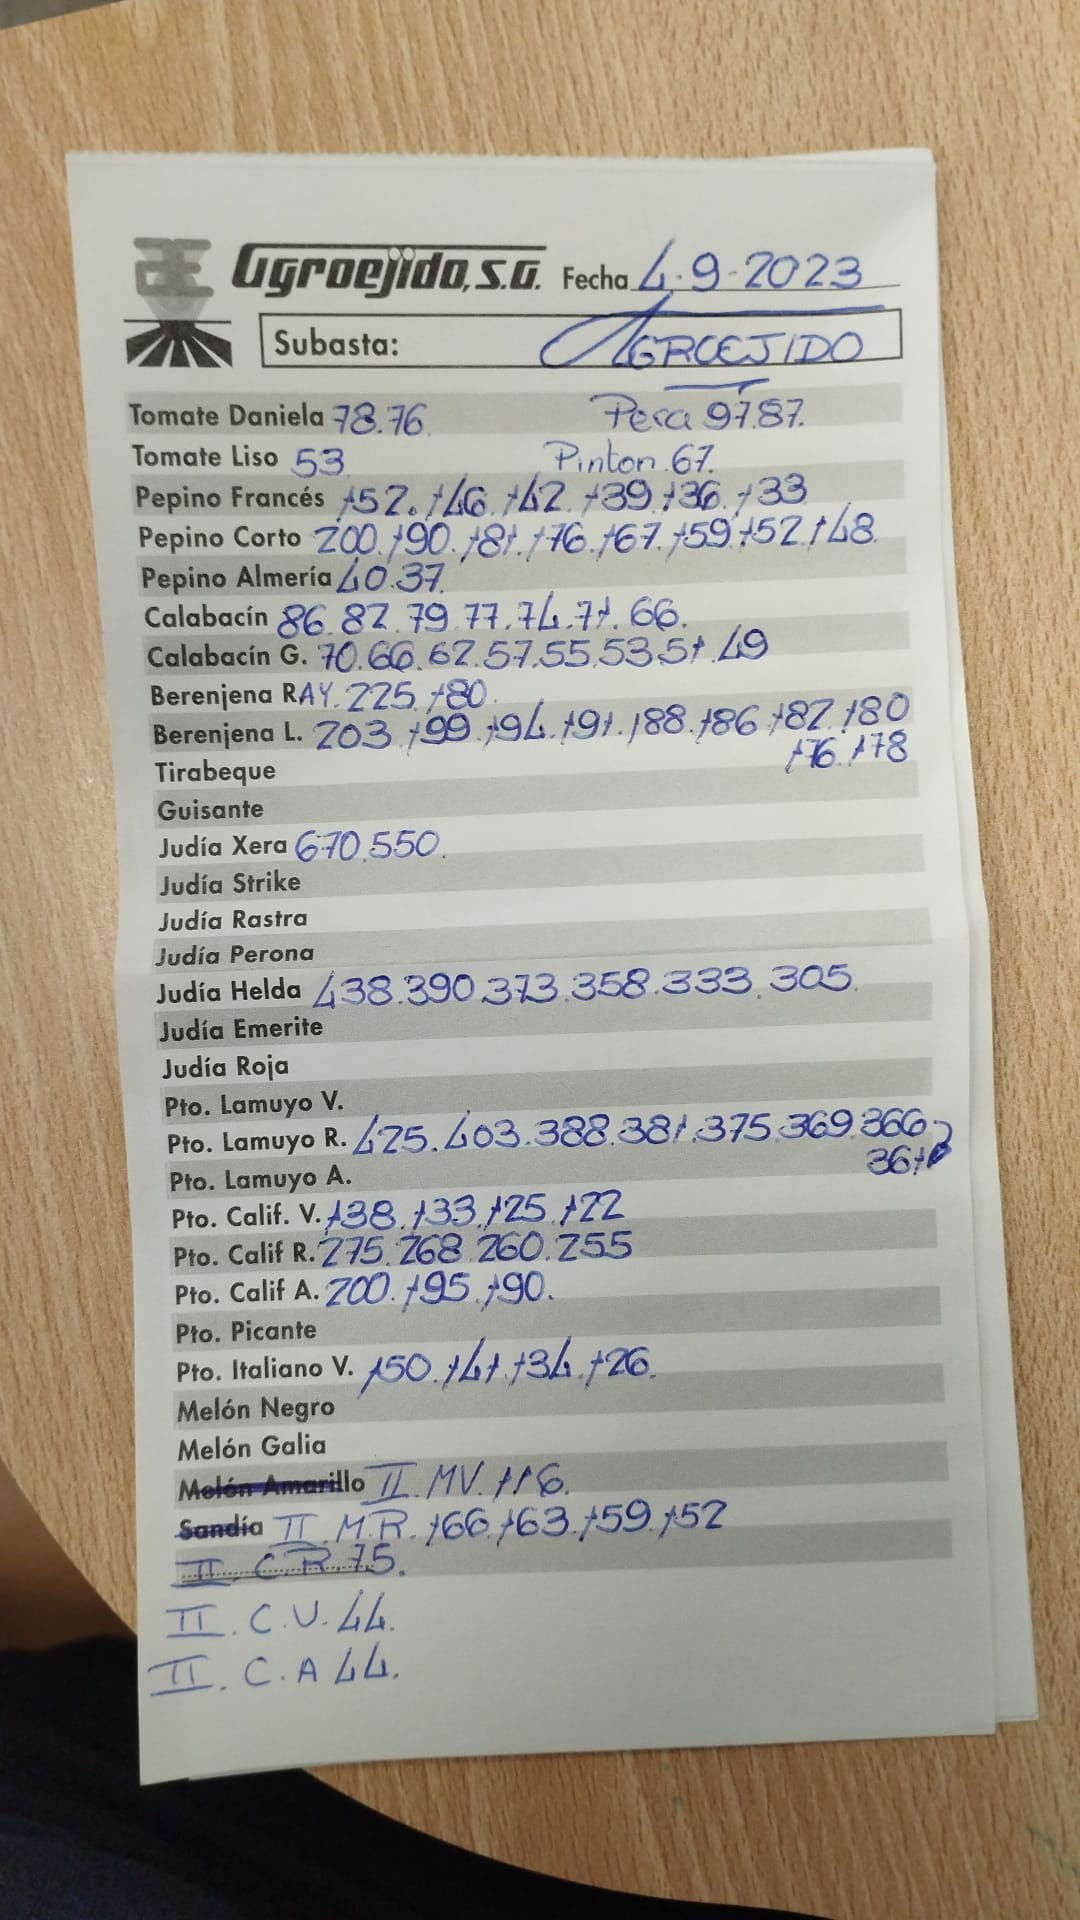 Agroejido, S.A. Fecha 4-9-2023
Subasta: AGROEJIDO
Tomate Daniela 78.76. Pera 97.87.
Tomate Liso 53 Pinton.67.
Pepino Francés 152.146.142.139.136.133
Pepino Corto 200.190.181.176.167.159.152.148
Pepino Almería 40.37.
Calabacín 86.82.79.77.74.71.66.
Calabacín G. 70.66.62.57.55.53.51.49
Berenjena RAY.225.180.
Berenjena L. 203.199.194.191.188.186.182.180
176.178
Tirabeque
Guisante
Judía Xera 670.550.
Judía Strike
Judía Rastra
Judía Perona
Judía Helda 438.390.373.358.333.305.
Judía Emerite
Judía Roja
Pto. Lamuyo V.
Pto. Lamuyo R. 425.403.388.381.375.369.366
361
Pto. Lamuyo A.
Pto. Calif. V. 138.133.125.122
Pto. Calif R. 275.268.260.255
Pto. Calif A. 200.195.190.
Pto. Picante
Pto. Italiano V. 150.141.134.126.
Melón Negro
Melón Galia
Melón Amarillo II.MV.116.
Sandía II.M.R.166.163.159.152
II.C.R.75.
II.C.V.44.
II.C.A 44.